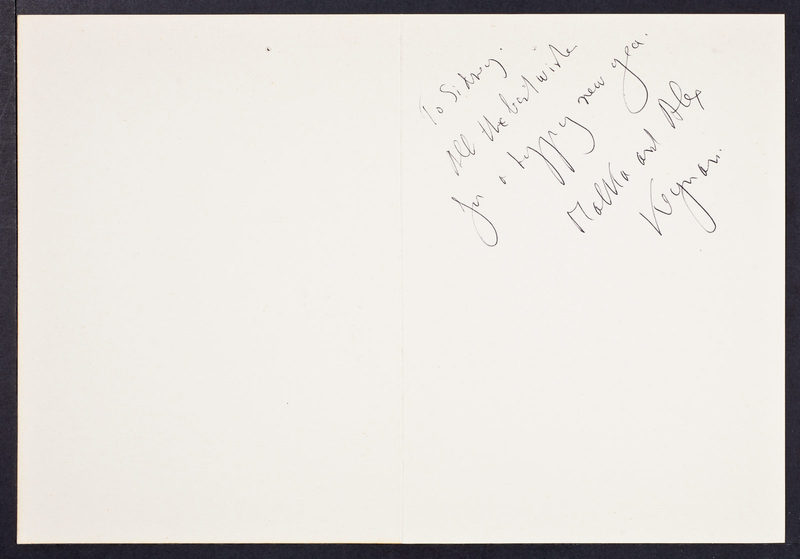 To Sidney.
All the best wishe
for a happy new yea.
Malka and Alex
Keynan.